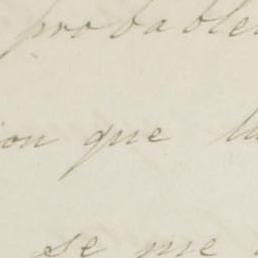 probable
ion que la
se me